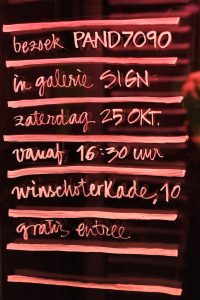 bezoek PAND7090
in galerie SIGN
zaterdag 25 OKT.
vanaf 16:30 uur
winschoterkade, 10
gratis entree